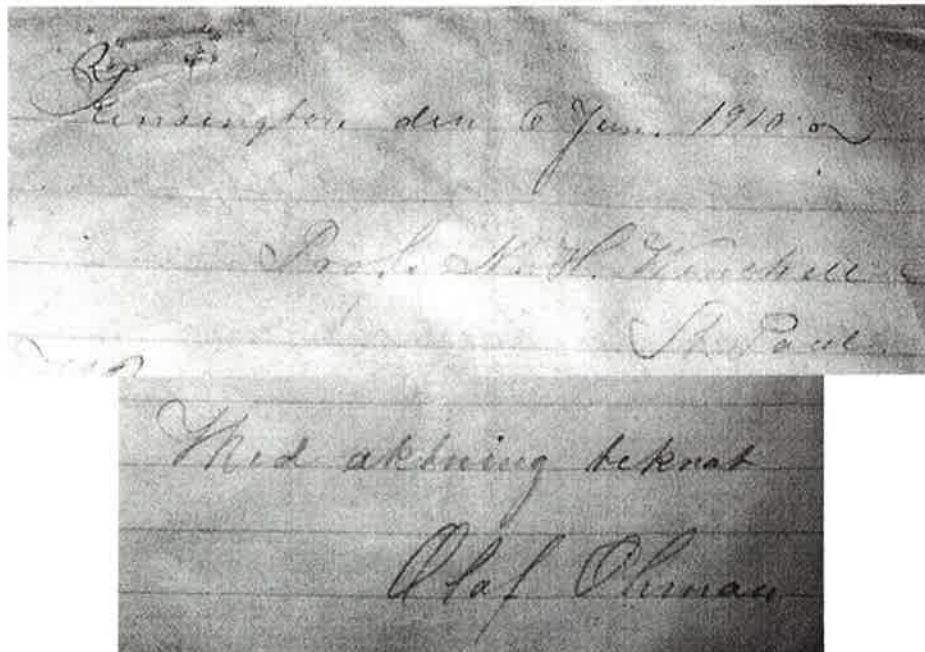 Kensington den 6 Jun. 1910
Prof. N. H. Winchell
St. Paul.
Med aktning teknat
Olaf Ohman